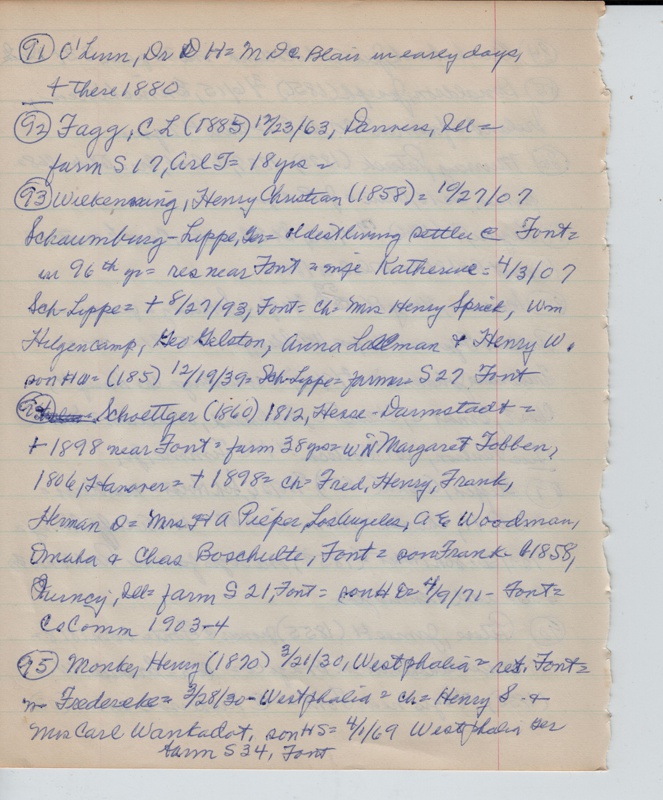 91 O'Linn, Dr D H = M Dc. Blair in early days,
+ there 1880
92 Fagg, C L (1885) 12/23/63, Danvers, Ill =
farm S 17, Arl T = 18 yrs =
93 Wilkening, Henry Christian (1858) = 10/27/07
Schaumburg-Lippe, Ger = oldest living settler @ Font =
in 96th yr = res near Font = mge Katherine = 4/3/07
Sch-Lippe = + 8/27/93, Font = ch = Mrs Henry Sprick, Wm
Hilgencamp, Geo Gelston, Anna Lallman & Henry W.
son HW = (185) 12/19/39 = Sch-Lippe = farmer = S 27 Font
94 Schoettger (1860) 1812, Hesse-Darmstadt =
+ 1898 near Font = farm 38 yrs = w N Margaret Tobben,
1806, Hanover = + 1898 = ch = Fred, Henry, Frank,
Herman D = Mrs H A Pieper, Los Angeles, A E Woodman,
Omaha & Chas Boschulte, Font = son Frank - 1858,
Quincy, Ill = farm S 21, Font = son H D = 4/9/71 - Font =
Co Comm 1903-4
95 Monke, Henry (1870) 3/21/30, Westphalia = ret. Font =
m Fredereke = 3/28/30 - Westphalia = ch = Henry S - &
Mrs Carl Wankadot, son HS = 4/1/69 Westphalia Ger
farm S 34, Font